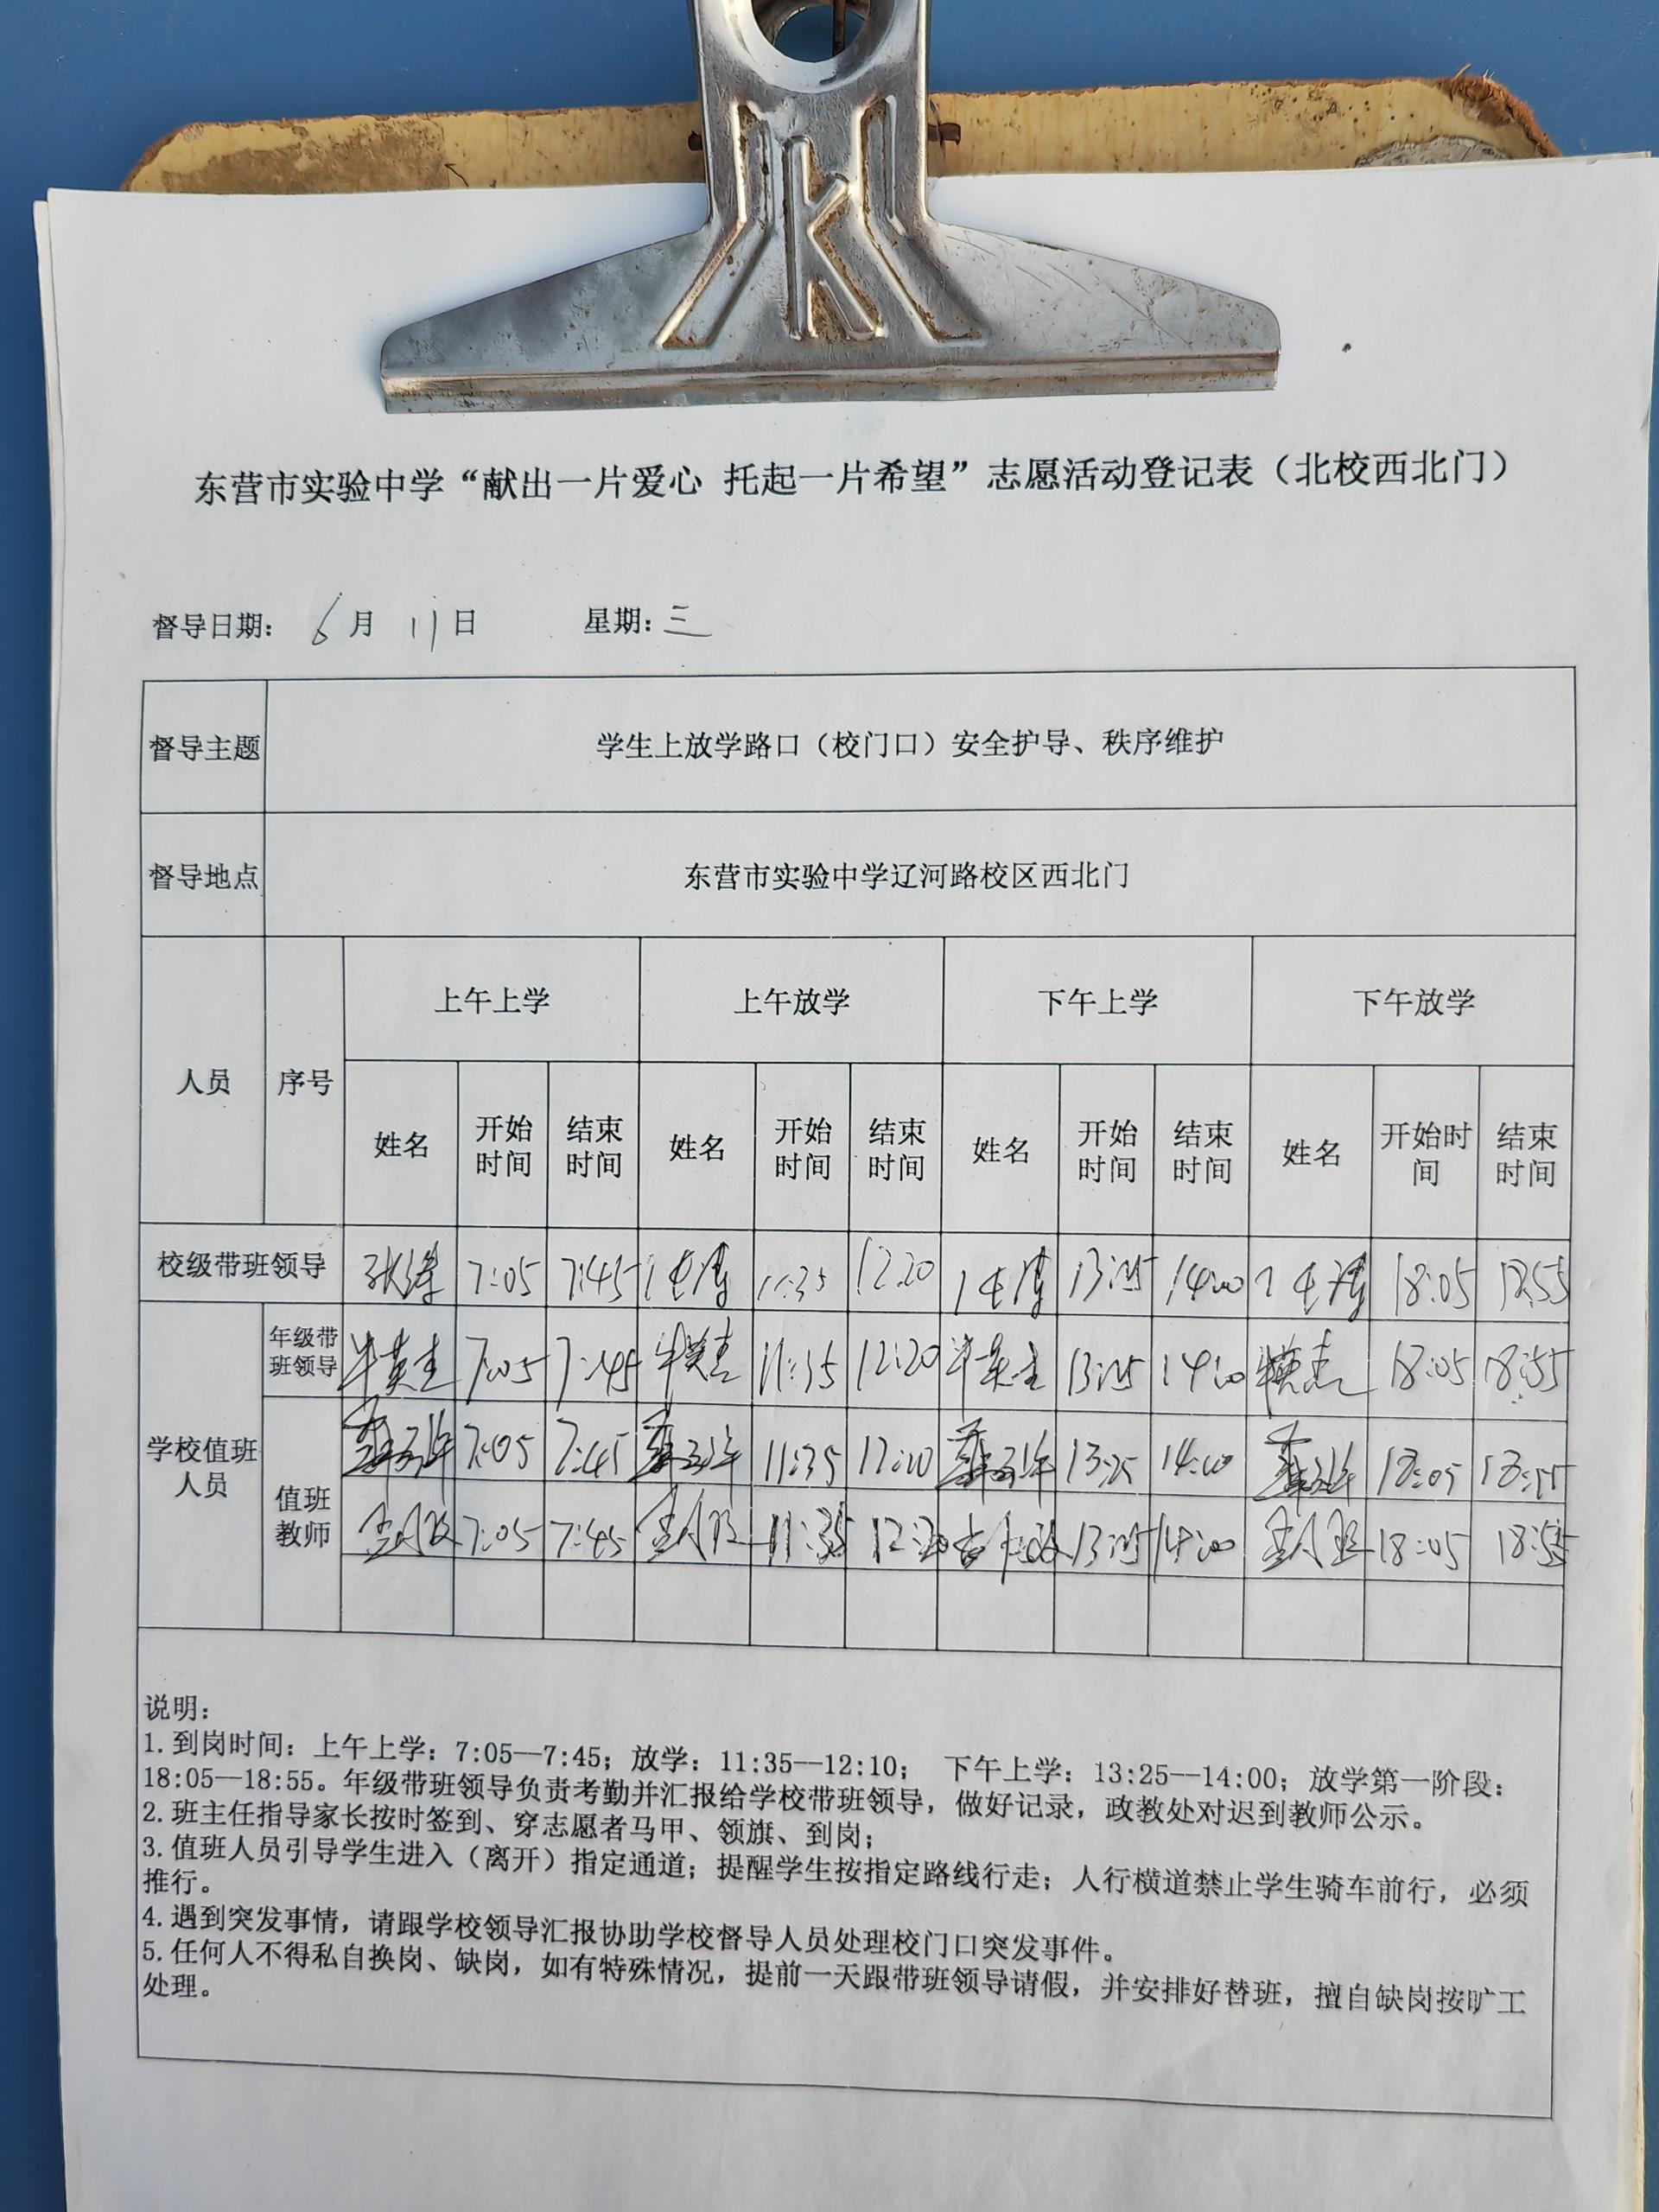 东营市实验中学“献出一片爱心 托起一片希望”志愿活动登记表（北校西北门）
督导日期： 6月 11日 星期：三
督导主题 学生上放学路口（校门口）安全护导、秩序维护
督导地点 东营市实验中学辽河路校区西北门
人员 序号 上午上学 上午放学 下午上学 下午放学
姓名 开始时间 结束时间 姓名 开始时间 结束时间 姓名 开始时间 结束时间 姓名 开始时间 结束时间
校级带班领导 7:05 7:45 11:35 12:20 13:25 14:00 18:05 18:55
学校值班人员
年级带班领导 牛英杰 7:05 7:45 牛英杰 11:35 12:20 牛英杰 13:25 14:00 牛英杰 18:05 18:55
值班教师 7:05 7:45 11:35 13:25 14:00 18:05 18:55
7:05 7:45 11:35 13:25 14:00 18:05 18:55
说明：
1.到岗时间：上午上学：7:05—7:45；放学：11:35—12:10； 下午上学：13:25—14:00；放学第一阶段：
18:05—18:55。年级带班领导负责考勤并汇报给学校带班领导，做好记录，政教处对迟到教师公示。
2.班主任指导家长按时签到、穿志愿者马甲、领旗、到岗；
3.值班人员引导学生进入（离开）指定通道；提醒学生按指定路线行走；人行横道禁止学生骑车前行，必须
推行。
4.遇到突发事情，请跟学校领导汇报协助学校督导人员处理校门口突发事件。
5.任何人不得私自换岗、缺岗，如有特殊情况，提前一天跟带班领导请假，并安排好替班，擅自缺岗按旷工
处理。